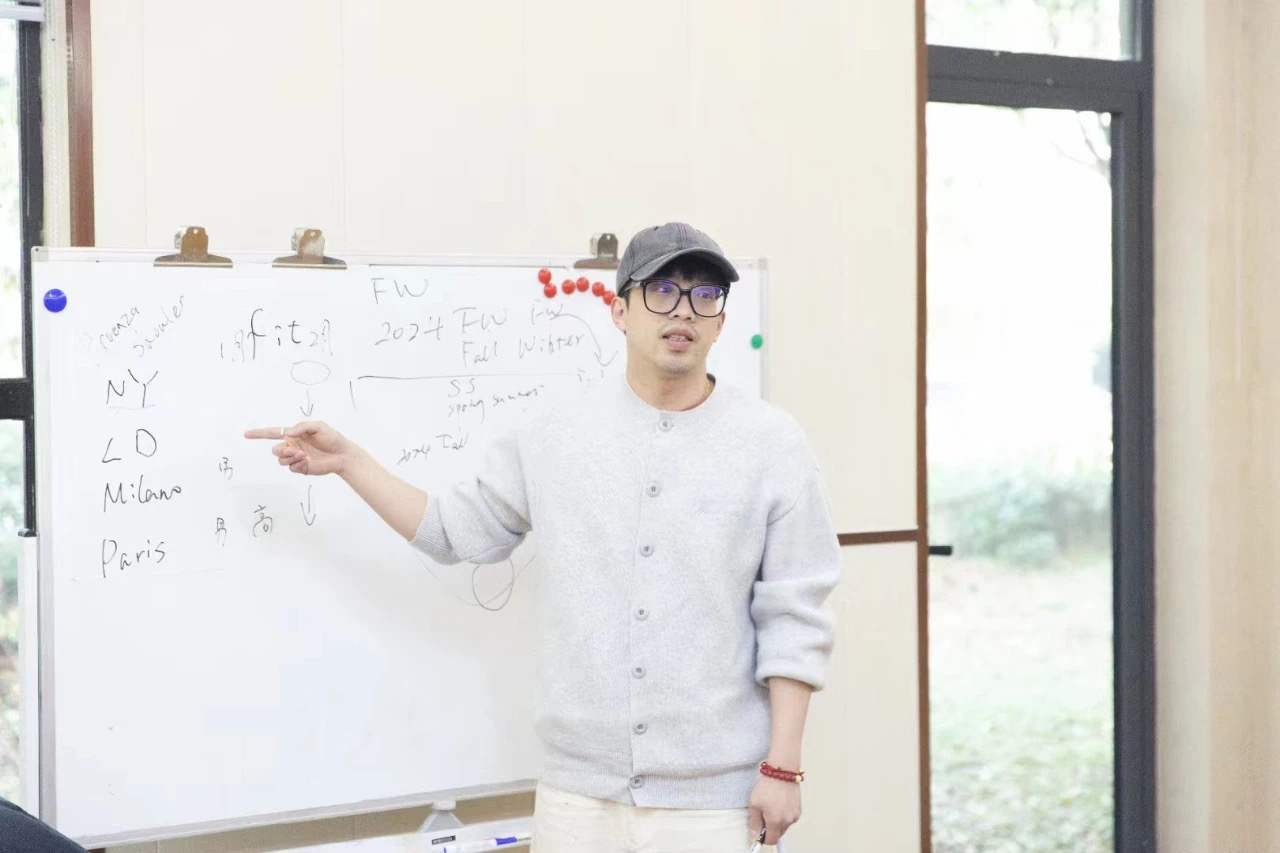 Proenza
Schouler
NY
LD
Milano
Paris
1月 fit 2月
男
男 高
FW
2024 FW FW
Fall Winter
SS
Spring Summer
2024 Fall